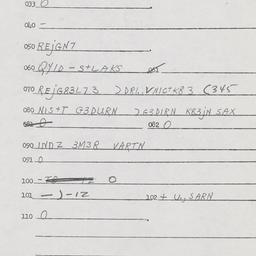 033 O
040 -
050 REjGN7
060 QYID - S+LAKS
070 REjG83L73 DRI., VNIC+KR3 (345
080 NIS+T G3DURN 7G3DIRN KR3jN SAX
082 O
090 INDZ 3M3R VARTN
091 O
100 - O
101 -)-1Z 102 + U., SARN
110 O